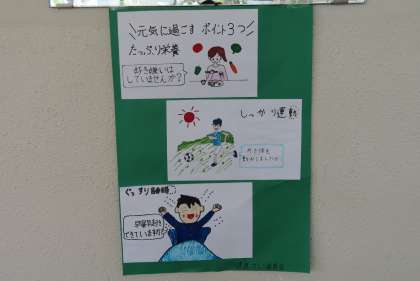 元気に過ごす ポイント3つ
たっぷり栄養
好き嫌いは
していませんか?
しっかり運動
外で体を
動かしましたか
ぐっすり睡眠
早寝早起き
できていますか?